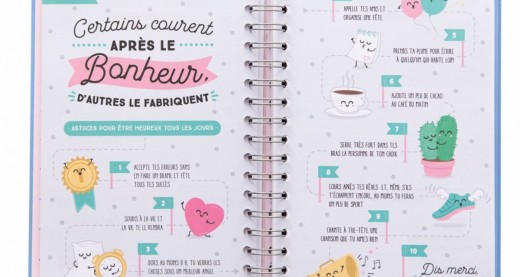 Certains courent
APRÈS LE
Bonheur,
D'AUTRES LE FABRIQUENT
ASTUCES POUR ÊTRE HEUREUX TOUS LES JOURS
1
ACCEPTE TES ERREURS SANS
EN FAIRE UN DRAME ET FÊTE
TOUS TES SUCCÈS
2
SOURIS À LA VIE ET
LA VIE TE LE RENDRA
3
DORS AU MOINS 8 H, TU VERRAS LES
CHOSES SOUS UN MEILLEUR ANGLE
APPELLE TES AMIS ET
ORGANISE UNE FÊTE
5
PRENDS TA PLUME POUR ÉCRIRE
À QUELQU'UN QUI HABITE LOIN
6
AJOUTE UN PEU DE CACAO
AU CAFÉ DU MATIN
7
SERRE TRÈS FORT DANS TES
BRAS LA PERSONNE DE TON CHOIX
8
COURS APRÈS TES RÊVES ET, MÊME S'ILS
T'ÉCHAPPENT ENCORE, AU MOINS TU FERAS
UN PEU DE SPORT
9
CHANTE À TUE-TÊTE UNE
CHANSON QUE TU AIMES BIEN
10
Dis merci,